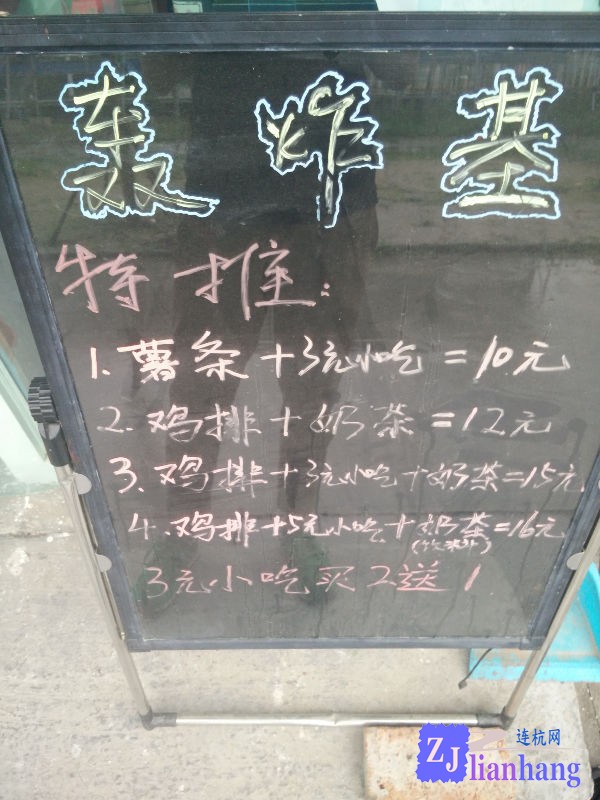 轰炸基
特推:
1.薯条+3元小吃=10元
2.鸡排+奶茶=12元
3.鸡排+3元小吃+奶茶=15元
4.鸡排+5元小吃+奶茶=16元
3元小吃买2送1
ZJ
连杭网
lianhang